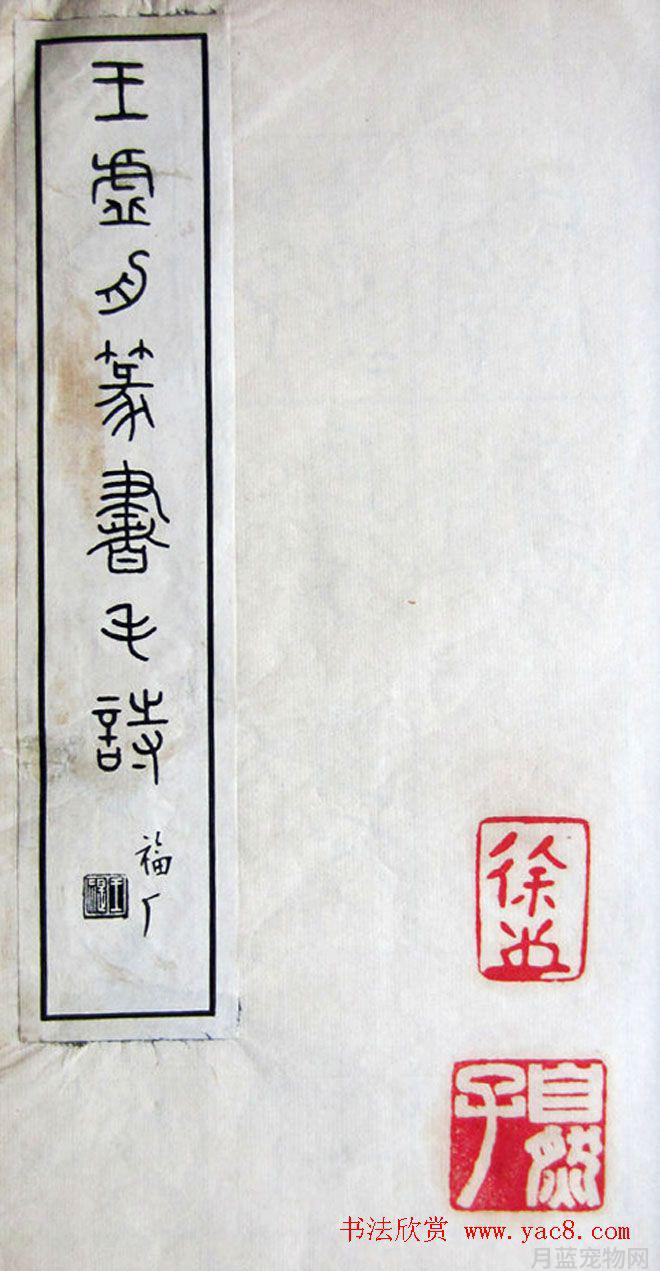 王虛舟篆書毛詩
福厂
王禔
徐
自然子
书法欣赏 www.yac8.com
月蓝宠物网